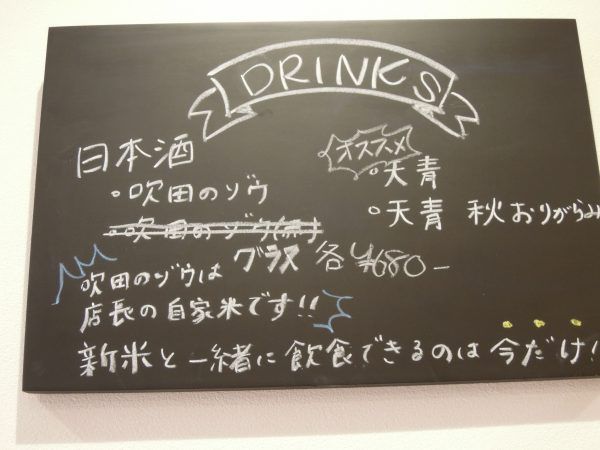 DRINKS
日本酒
。吹田のゾウ
オススメ
。天青
。天青 秋おりがらみ
グラス 各 ¥680-
吹田のゾウは
店長の自家米です!!
新米と一緒に飲食できるのは今だけ!